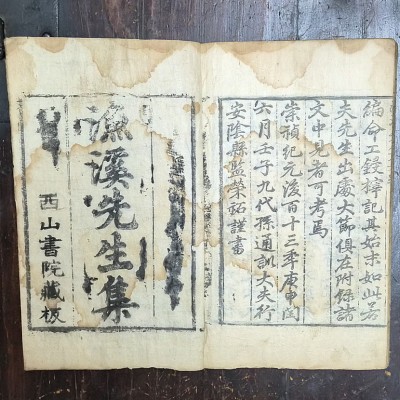 編命工鋟梓記其始末如此若
夫先生出處大節俱在附錄諸
文中見者可考焉
崇禎紀元後百十三年庚申閏
六月壬子九代孫通訓大夫行
安陰縣監榮祏謹書
漁溪先生集
西山書院藏板